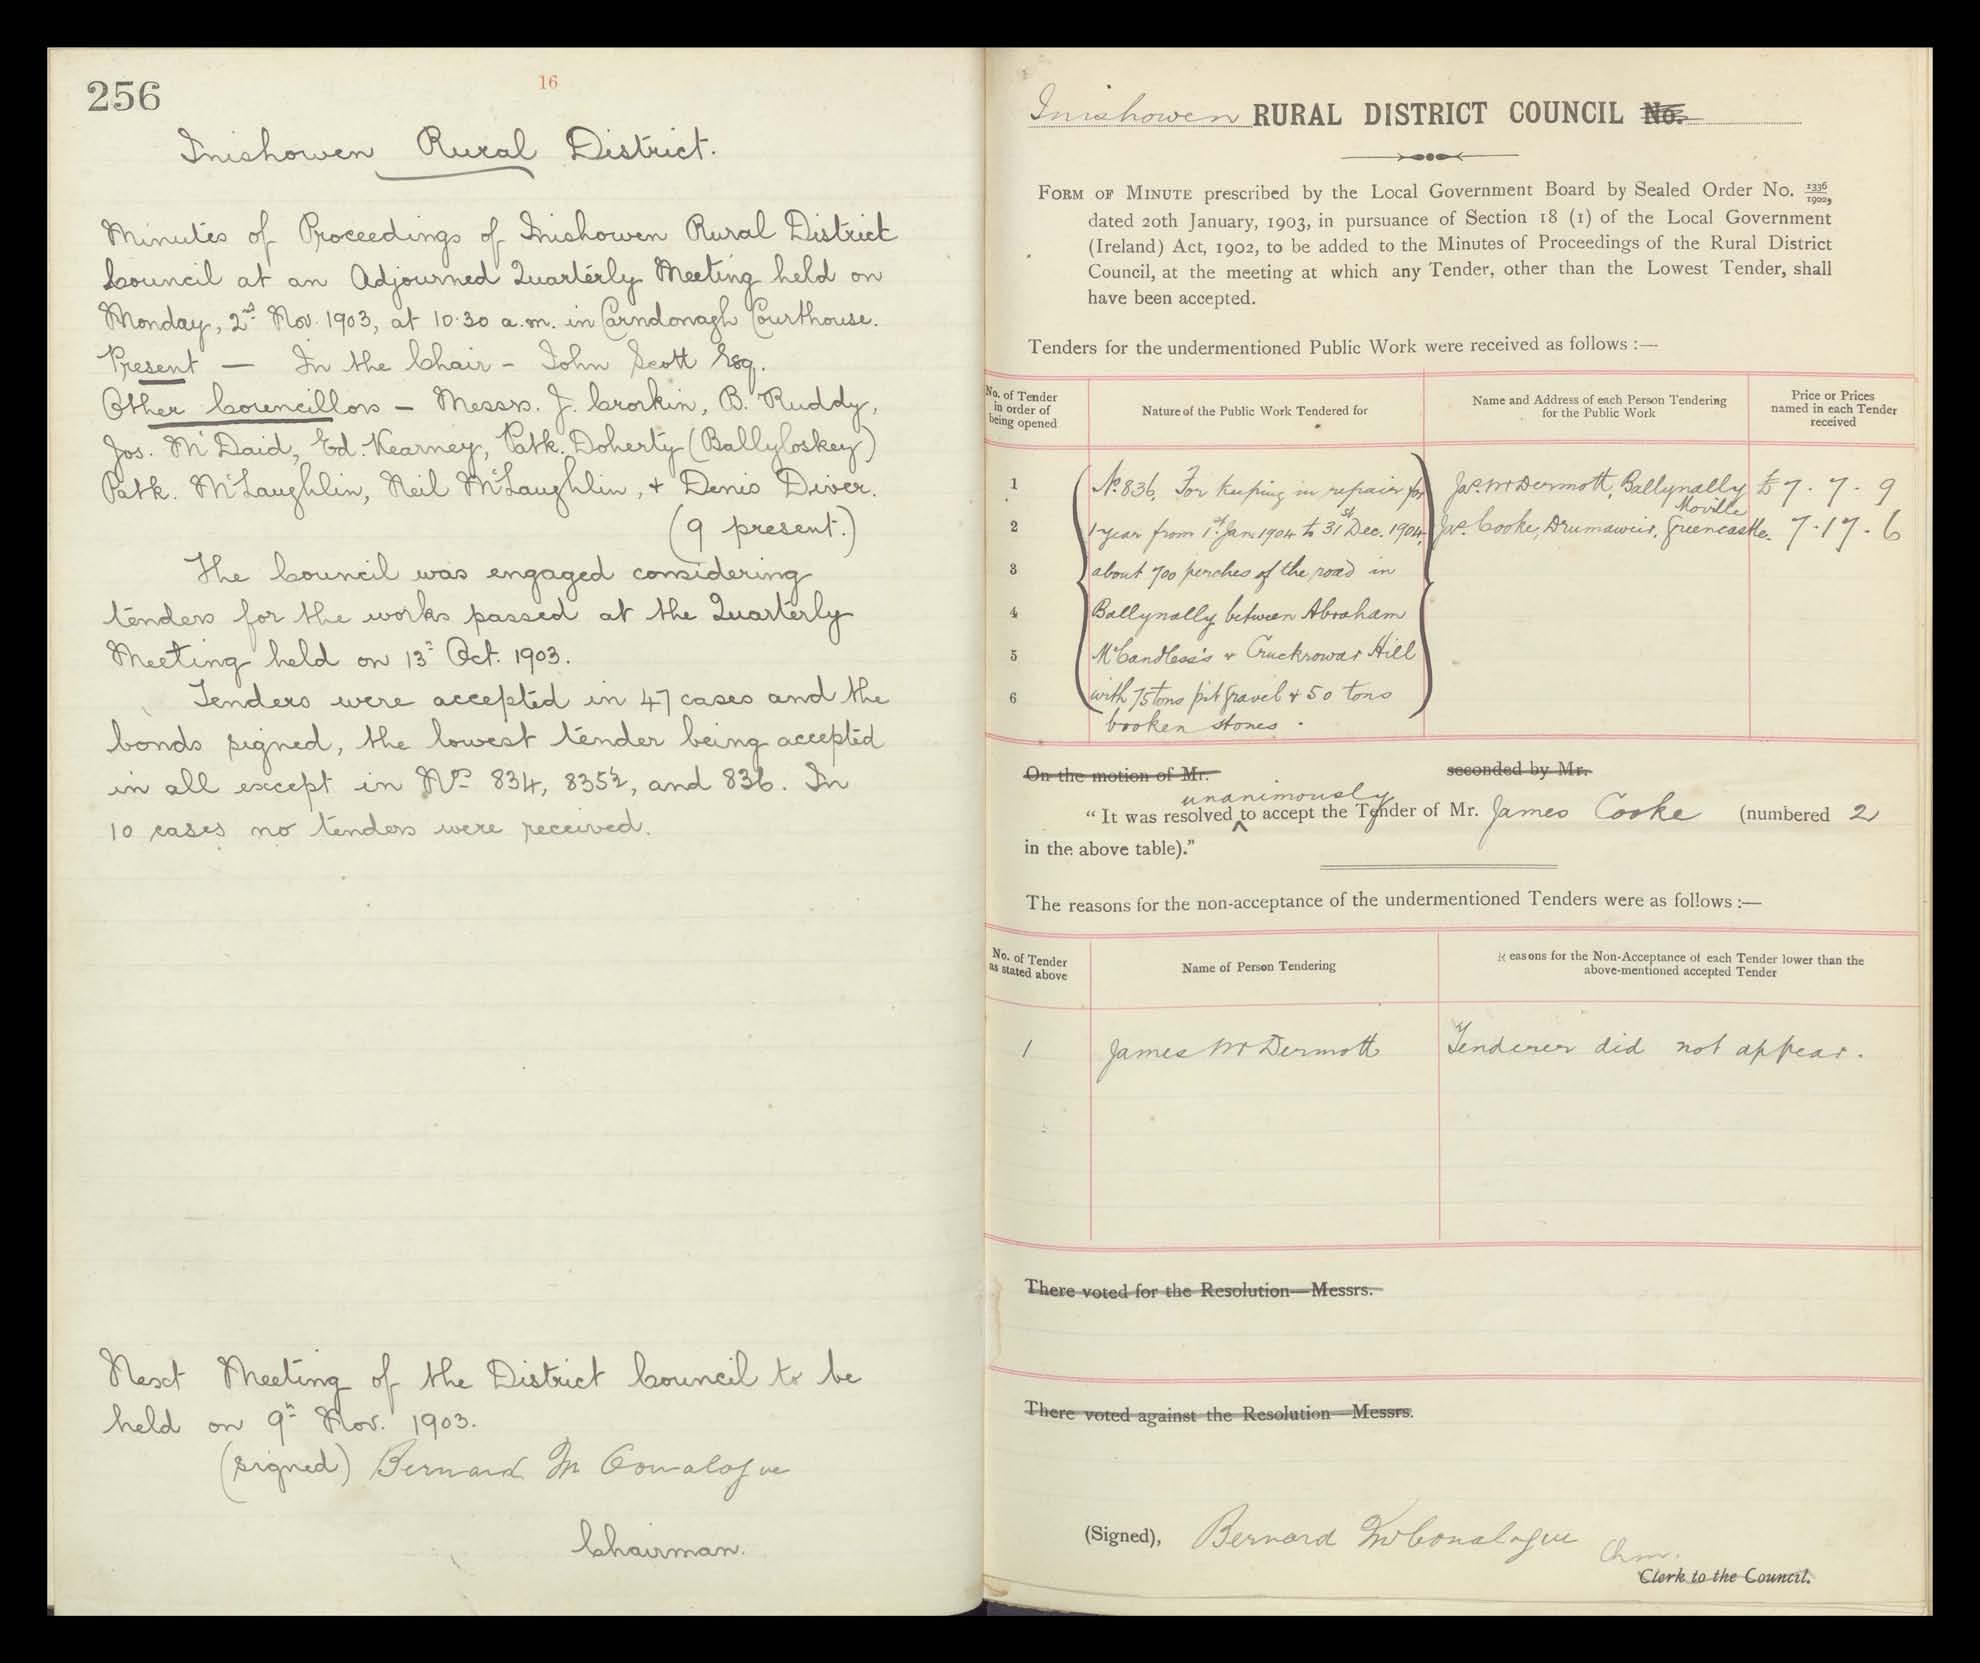 256
16
Inishowen Rural District.
Minutes of Proceedings of Inishowen Rural District
Council at an Adjourned Quarterly Meeting held on
Monday, 2nd Nov. 1903, at 10.30 a.m. in Carndonagh Courthouse.
Present — In the Chair – John Scott Esq.
Other Councillors – Messrs. J. Crorkin, B. Ruddy,
Jos. McDaid, Ed. Kearney, Patk. Doherty (Ballyloskey)
Patk. McLaughlin, Neil McLaughlin, & Denis Diver.
(9 present.)
The Council was engaged considering
tenders for the works passed at the Quarterly
Meeting held on 13th Oct. 1903.
Tenders were accepted in 47 cases and the
bonds signed, the lowest tender being accepted
in all except in Nos 834, 835½, and 836. In
10 cases no tenders were received.
Next Meeting of the District Council to be
held on 9th Nov. 1903.
(signed) Bernard McConalogue
Chairman.
Inishowen RURAL DISTRICT COUNCIL No.
FORM OF MINUTE prescribed by the Local Government Board by Sealed Order No. 1336/1902,
dated 20th January, 1903, in pursuance of Section 18 (1) of the Local Government
(Ireland) Act, 1902, to be added to the Minutes of Proceedings of the Rural District
Council, at the meeting at which any Tender, other than the Lowest Tender, shall
have been accepted.
Tenders for the undermentioned Public Work were received as follows :—
No. of Tender in order of being opened
Nature of the Public Work Tendered for
Name and Address of each Person Tendering for the Public Work
Price or Prices named in each Tender received
1 No. 836, For keeping in repair for Jas. McDermott, Ballynally £7 . 7 . 9
Moville
2 1 year from 1st Jan 1904 to 31st Dec. 1904, Jas. Cooke, Drumaweir, Greencastle. 7 . 17 . 6
3 about 700 perches of the road in
4 Ballynally between Abraham
5 McCandless's & Cruckrowar Hill
6 with 75 tons pit gravel & 50 tons
broken stones .
On the motion of Mr. seconded by Mr.
unanimously
“ It was resolved ^ to accept the Tender of Mr. James Cooke (numbered 2
in the above table).”
The reasons for the non-acceptance of the undermentioned Tenders were as follows :—
No. of Tender as stated above
Name of Person Tendering
Reasons for the Non-Acceptance of each Tender lower than the above-mentioned accepted Tender
1 James McDermott Tenderer did not appear.
There voted for the Resolution—Messrs.
There voted against the Resolution—Messrs.
(Signed), Bernard McConalogue
Chm.
Clerk to the Council.